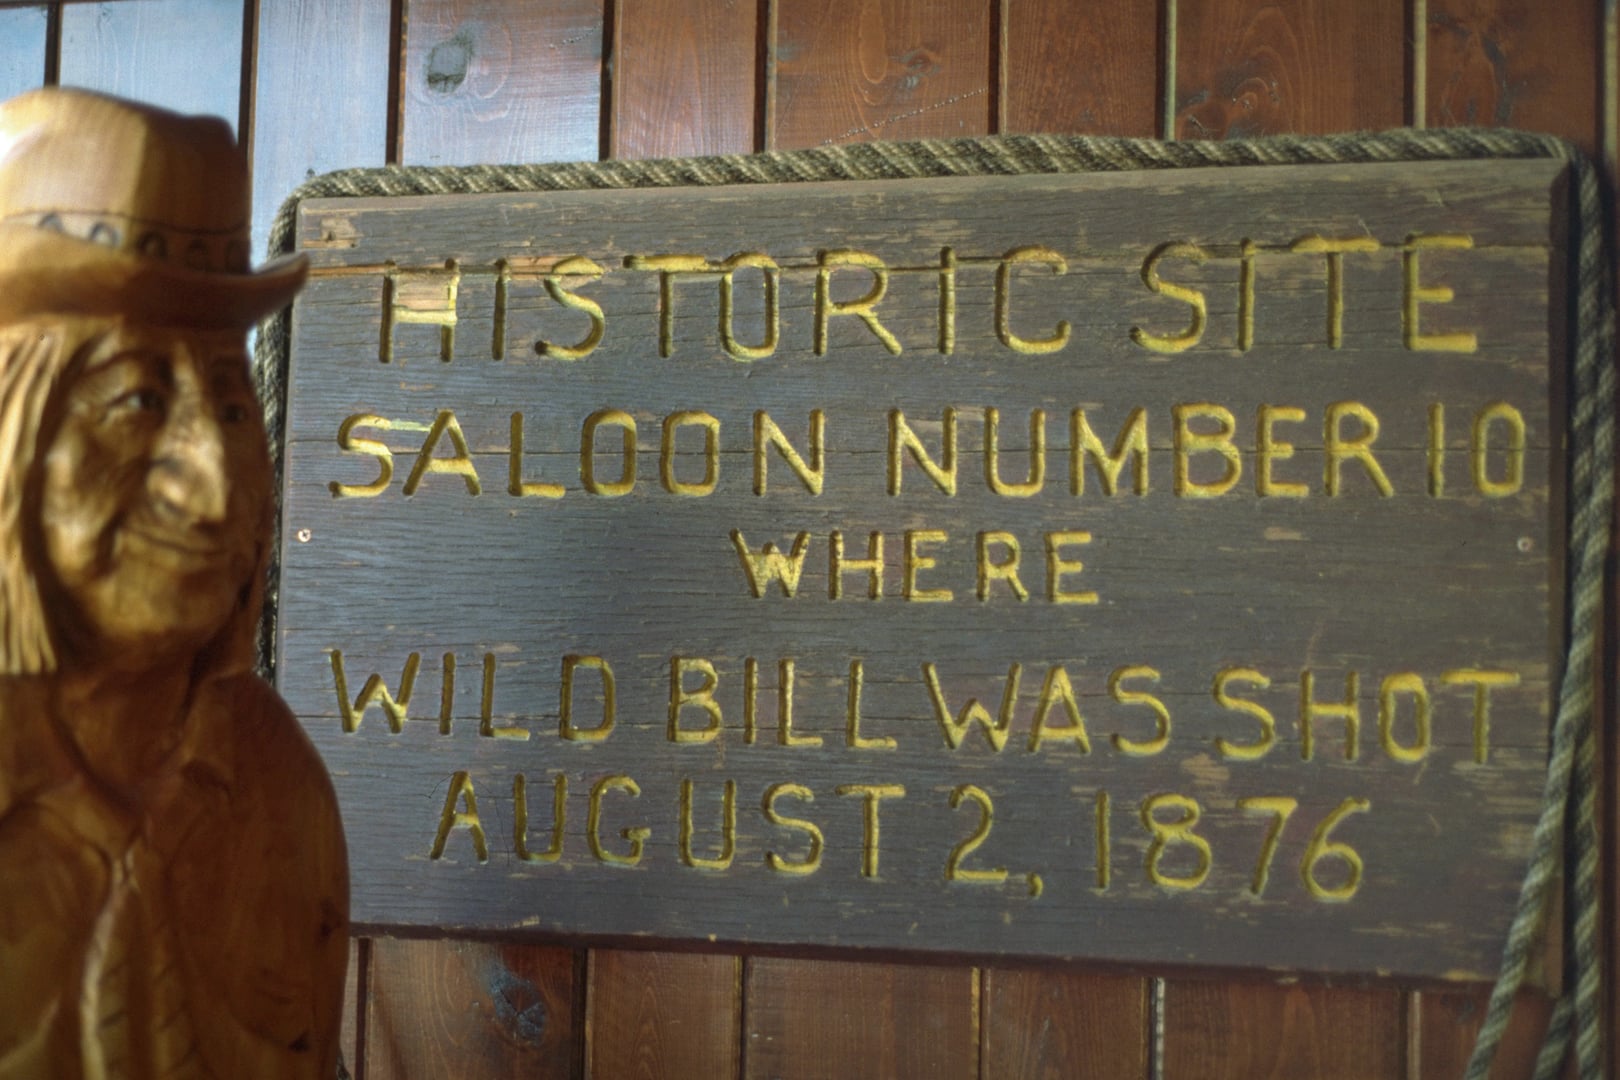 HISTORIC SITE
SALOON NUMBER 10
WHERE
WILD BILL WAS SHOT
AUGUST 2, 1876